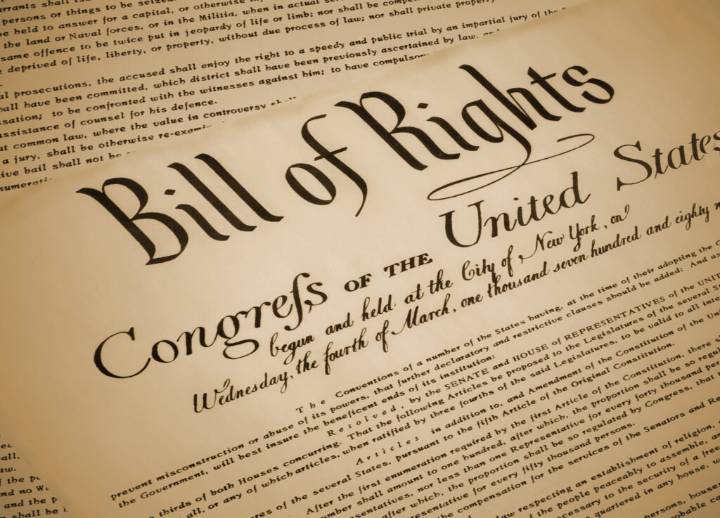 persons or things to be seized
be held to answer for a capital, or otherwise
the land or Naval forces, or in the Militia, when in actual
same offence to be twice put in jeopardy of life or limb; nor shall be
deprived of life, liberty, or property, without due process of law; nor shall private property
prosecutions, the accused shall enjoy the right to a speedy and public trial by an impartial jury of the
shall have been committed, which district shall have been previously ascertained by law,
to be confronted with the witnesses against him; to have
assistance of counsel for his defence.
at common law, where the value in controversy
a jury, shall be otherwise
bail shall not be
Bill of Rights
Congreſs OF THE United States
begun and held at the City of New York, on
Wednesday, the fourth of March, one thousand seven hundred and eighty
The Conventions of a number of the States having, at the time of their adopting the
prevent misconstruction or abuse of its powers, that further declaratory and restrictive clauses should be added: And
the Government, will best insure the beneficent ends of its institution:
Resolved, by the SENATE and HOUSE of REPRESENTATIVES of the
thirds of both Houses concurring. That the following Articles be proposed to the Legislatures of the several
all, or any of which articles, when ratified by three fourths of the said Legislatures, to be valid to all
Articles in addition to, and Amendment of the Constitution of the
of the several States, pursuant to the fifth Article of the Original Constitution.
After the first enumeration required by the first Article of the Constitution, there
number shall amount to one hundred, after which, the proportion shall be so
nor less than one Representative for every forty thousand
after which, the proportion shall be so regulated by Congress, that
Representative for every fifty thousand persons.
compensation for the services of the Senators and
law respecting an establishment of religion,
of the people peaceably to assemble,
necessary to the security of a
be quartered in any house,